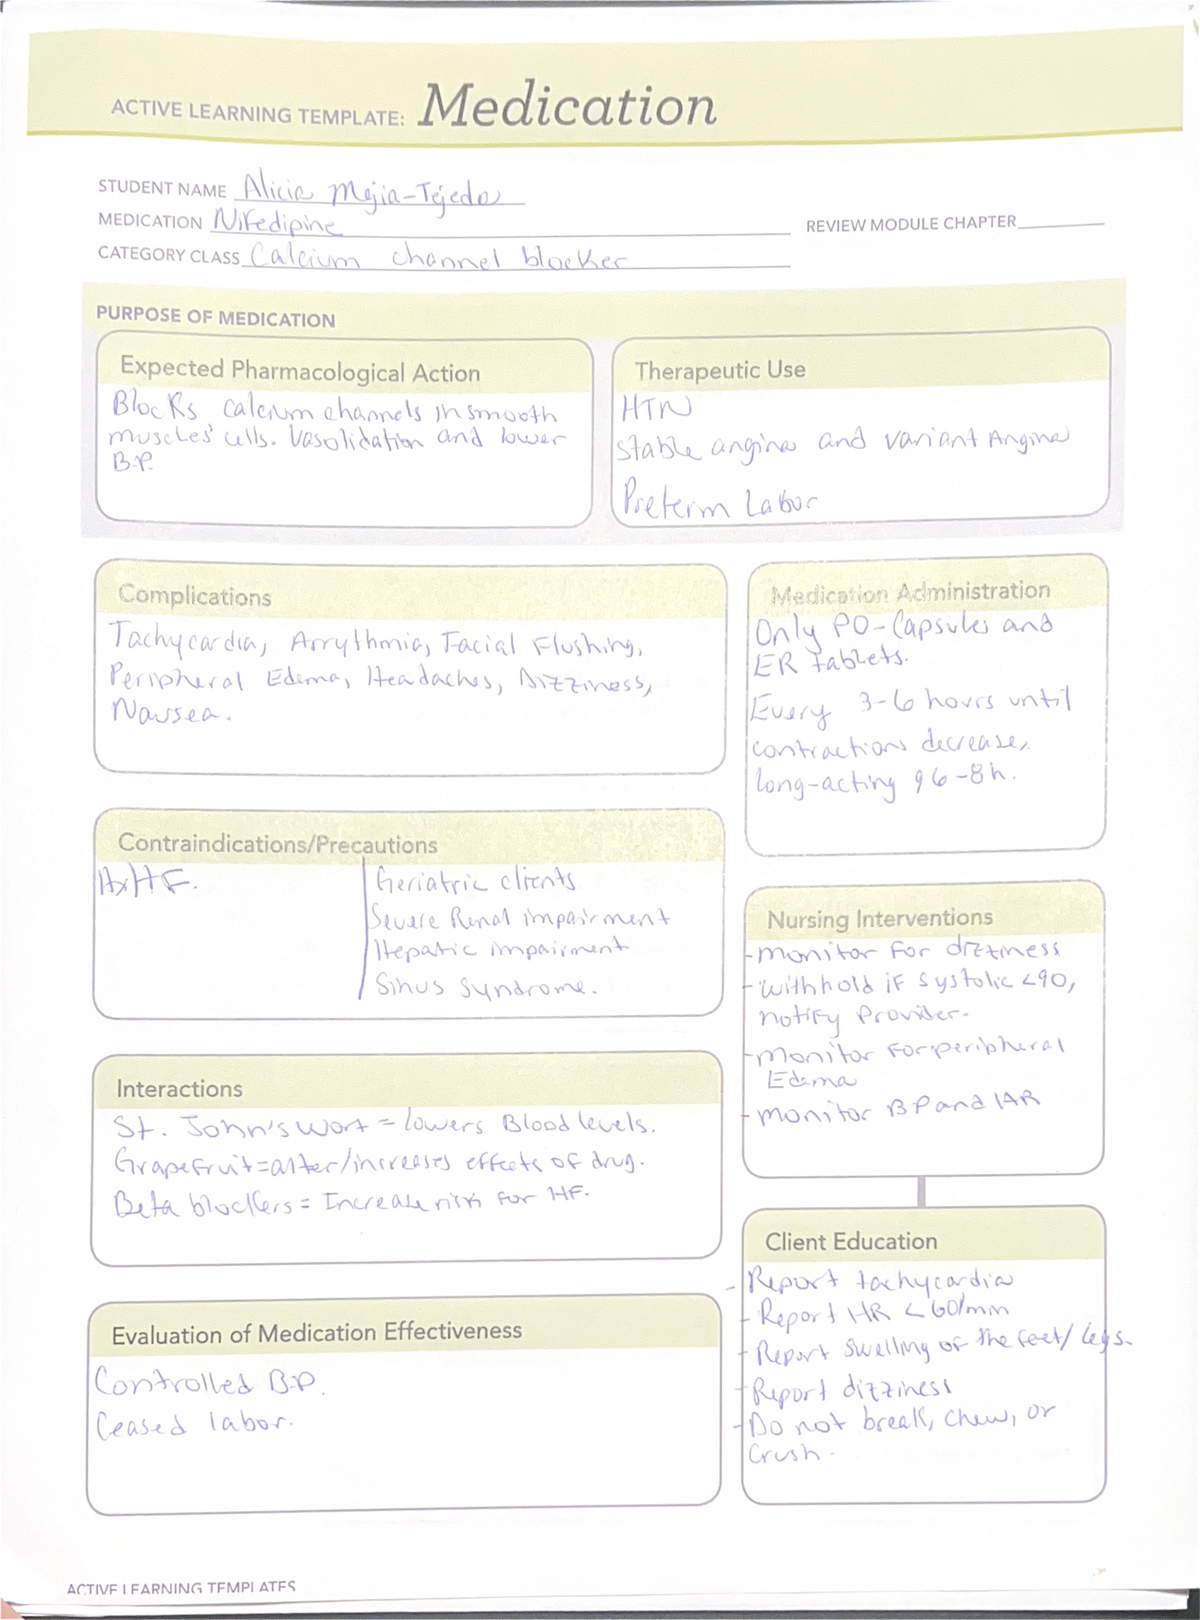 ACTIVE LEARNING TEMPLATE: Medication
STUDENT NAME Alicia Mejia-Tejeda
MEDICATION Nifedipine
REVIEW MODULE CHAPTER
CATEGORY CLASS Calcium channel blocker
PURPOSE OF MEDICATION
Expected Pharmacological Action
Blocks calcium channels in smooth
muscles' cells. Vasolidation and lower
B.P.
Therapeutic Use
HTN
Stable angina and variant Angina
Preterm Labor
Complications
Tachycardia, Arrythmia, Facial Flushing,
Peripheral Edema, Headaches, Dizziness,
Nausea.
Medication Administration
Only PO-Capsules and
ER tablets.
Every 3-6 hours until
contractions decrease,
long-acting q6-8h.
Contraindications/Precautions
Hx HF.
Geriatric clients
Severe Renal impairment
Hepatic impairment
Sinus Syndrome.
Nursing Interventions
-monitor for dizziness
-withhold if systolic <90,
notify provider.
-monitor for peripheral
Edema
-monitor BP and HR
Interactions
St. John's wort = lowers Blood levels.
Grapefruit = alter/increases effects of drug.
Beta blockers = Increase risk for HF.
Client Education
- Report tachycardia
- Report HR <60/min
- Report swelling of the feet/legs.
- Report dizziness
- Do not break, chew, or
crush.
Evaluation of Medication Effectiveness
Controlled B.P.
Ceased labor.
ACTIVE LEARNING TEMPLATES